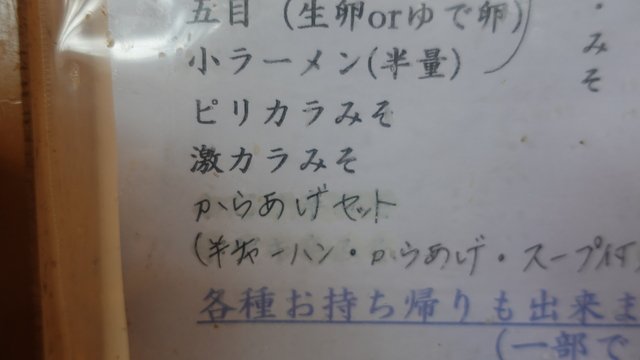 五目(生卵orゆで卵)
小ラーメン(半量)
・みそ
ピリカラみそ
激カラみそ
からあげセット
(半チャーハン・からあげ・スープ付
各種お持ち帰りも出来ま
(一部で